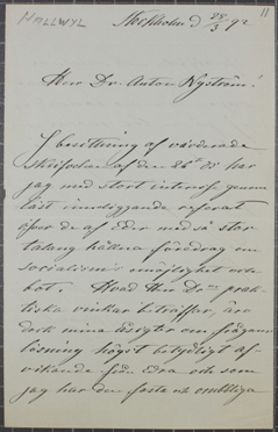 HALLWYL
11
Stockholm d 28/3 92
Herr Dr. Anton Nyström!
I besittning af värderade
skrifvelse af den 26te ds har
jag med stort intresse genom
läst inneliggande referat
öfver de af Eder med så stor
talang hållna föredrag om
socialismens omöjlighet och
hot. Hvad Herr Drns prak-
tiska vinkar beträffar, äro
dock mina åsigter om frågans
lösning högst betydligt af-
vikande från Edra och som
jag har den fasta och orubbliga